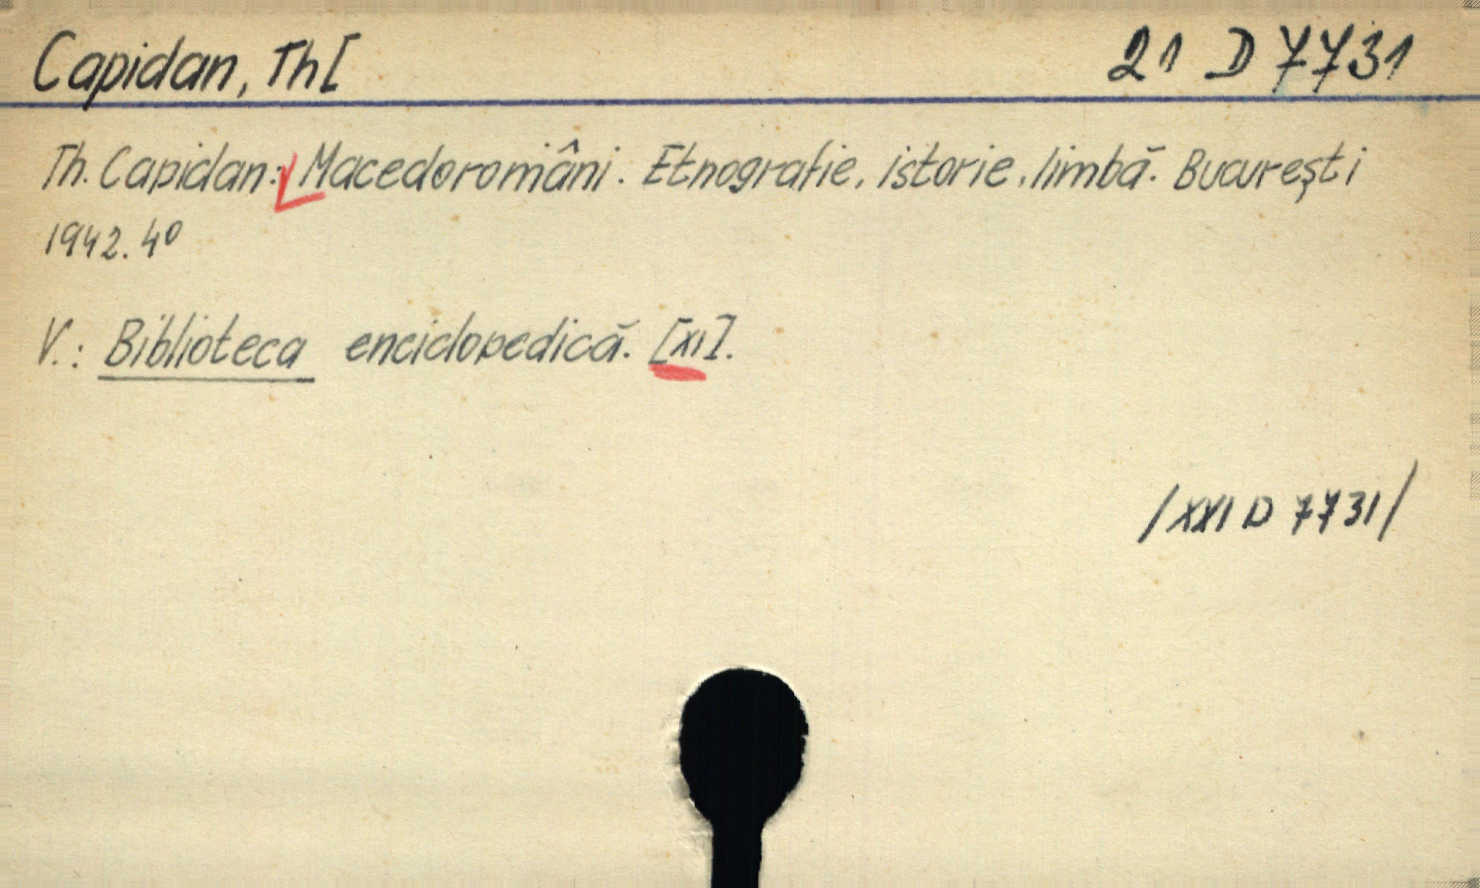 Capidan, Th[
21 D 7731
Th. Capidan: Macedoromâni. Etnografie, istorie, limbă. Bucureşti
1942. 4º
V.: Biblioteca enciclopedică. [XI].
/XXI D 7731/